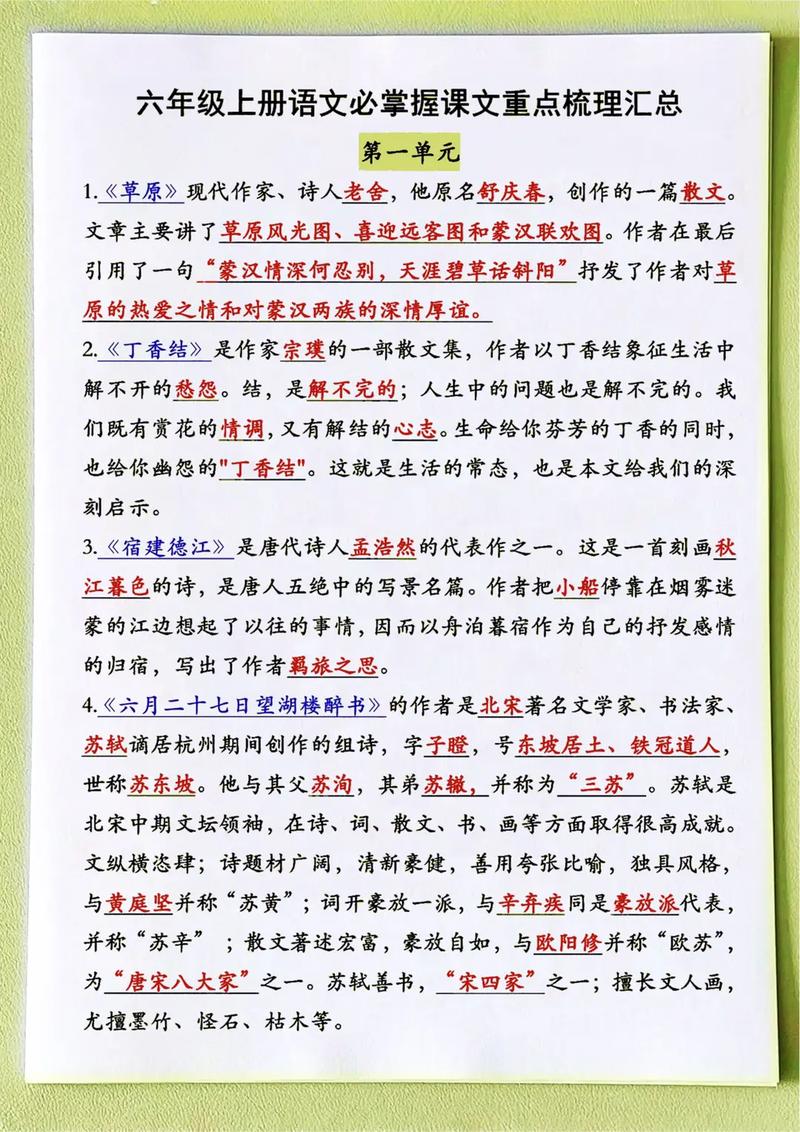 六年级上册语文必掌握课文重点梳理汇总
第一单元
1.《草原》现代作家、诗人老舍，他原名舒庆春，创作的一篇散文。
文章主要讲了草原风光图、喜迎远客图和蒙汉联欢图。作者在最后
引用了一句“蒙汉情深何忍别，天涯碧草话斜阳”抒发了作者对草
原的热爱之情和对蒙汉两族的深情厚谊。
2.《丁香结》是作家宗璞的一部散文集，作者以丁香结象征生活中
解不开的愁怨。结，是解不完的；人生中的问题也是解不完的。我
们既有赏花的情调，又有解结的心志。生命给你芬芳的丁香的同时，
也给你幽怨的"丁香结"。这就是生活的常态，也是本文给我们的深
刻启示。
3.《宿建德江》是唐代诗人孟浩然的代表作之一。这是一首刻画秋
江暮色的诗，是唐人五绝中的写景名篇。作者把小船停靠在烟雾迷
蒙的江边想起了以往的事情，因而以舟泊暮宿作为自己的抒发感情
的归宿，写出了作者羁旅之思。
4.《六月二十七日望湖楼醉书》的作者是北宋著名文学家、书法家、
苏轼谪居杭州期间创作的组诗，字子瞪，号东坡居土、铁冠道人，
世称苏东坡。他与其父苏洵，其弟苏辙，并称为“三苏”。苏轼是
北宋中期文坛领袖，在诗、词、散文、书、画等方面取得很高成就。
文纵横恣肆；诗题材广阔，清新豪健，善用夸张比喻，独具风格，
与黄庭坚并称“苏黄”；词开豪放一派，与辛弃疾同是豪放派代表，
并称“苏辛” ；散文著述宏富，豪放自如，与欧阳修并称“欧苏”，
为“唐宋八大家”之一。苏轼善书，“宋四家”之一；擅长文人画，
尤擅墨竹、怪石、枯木等。